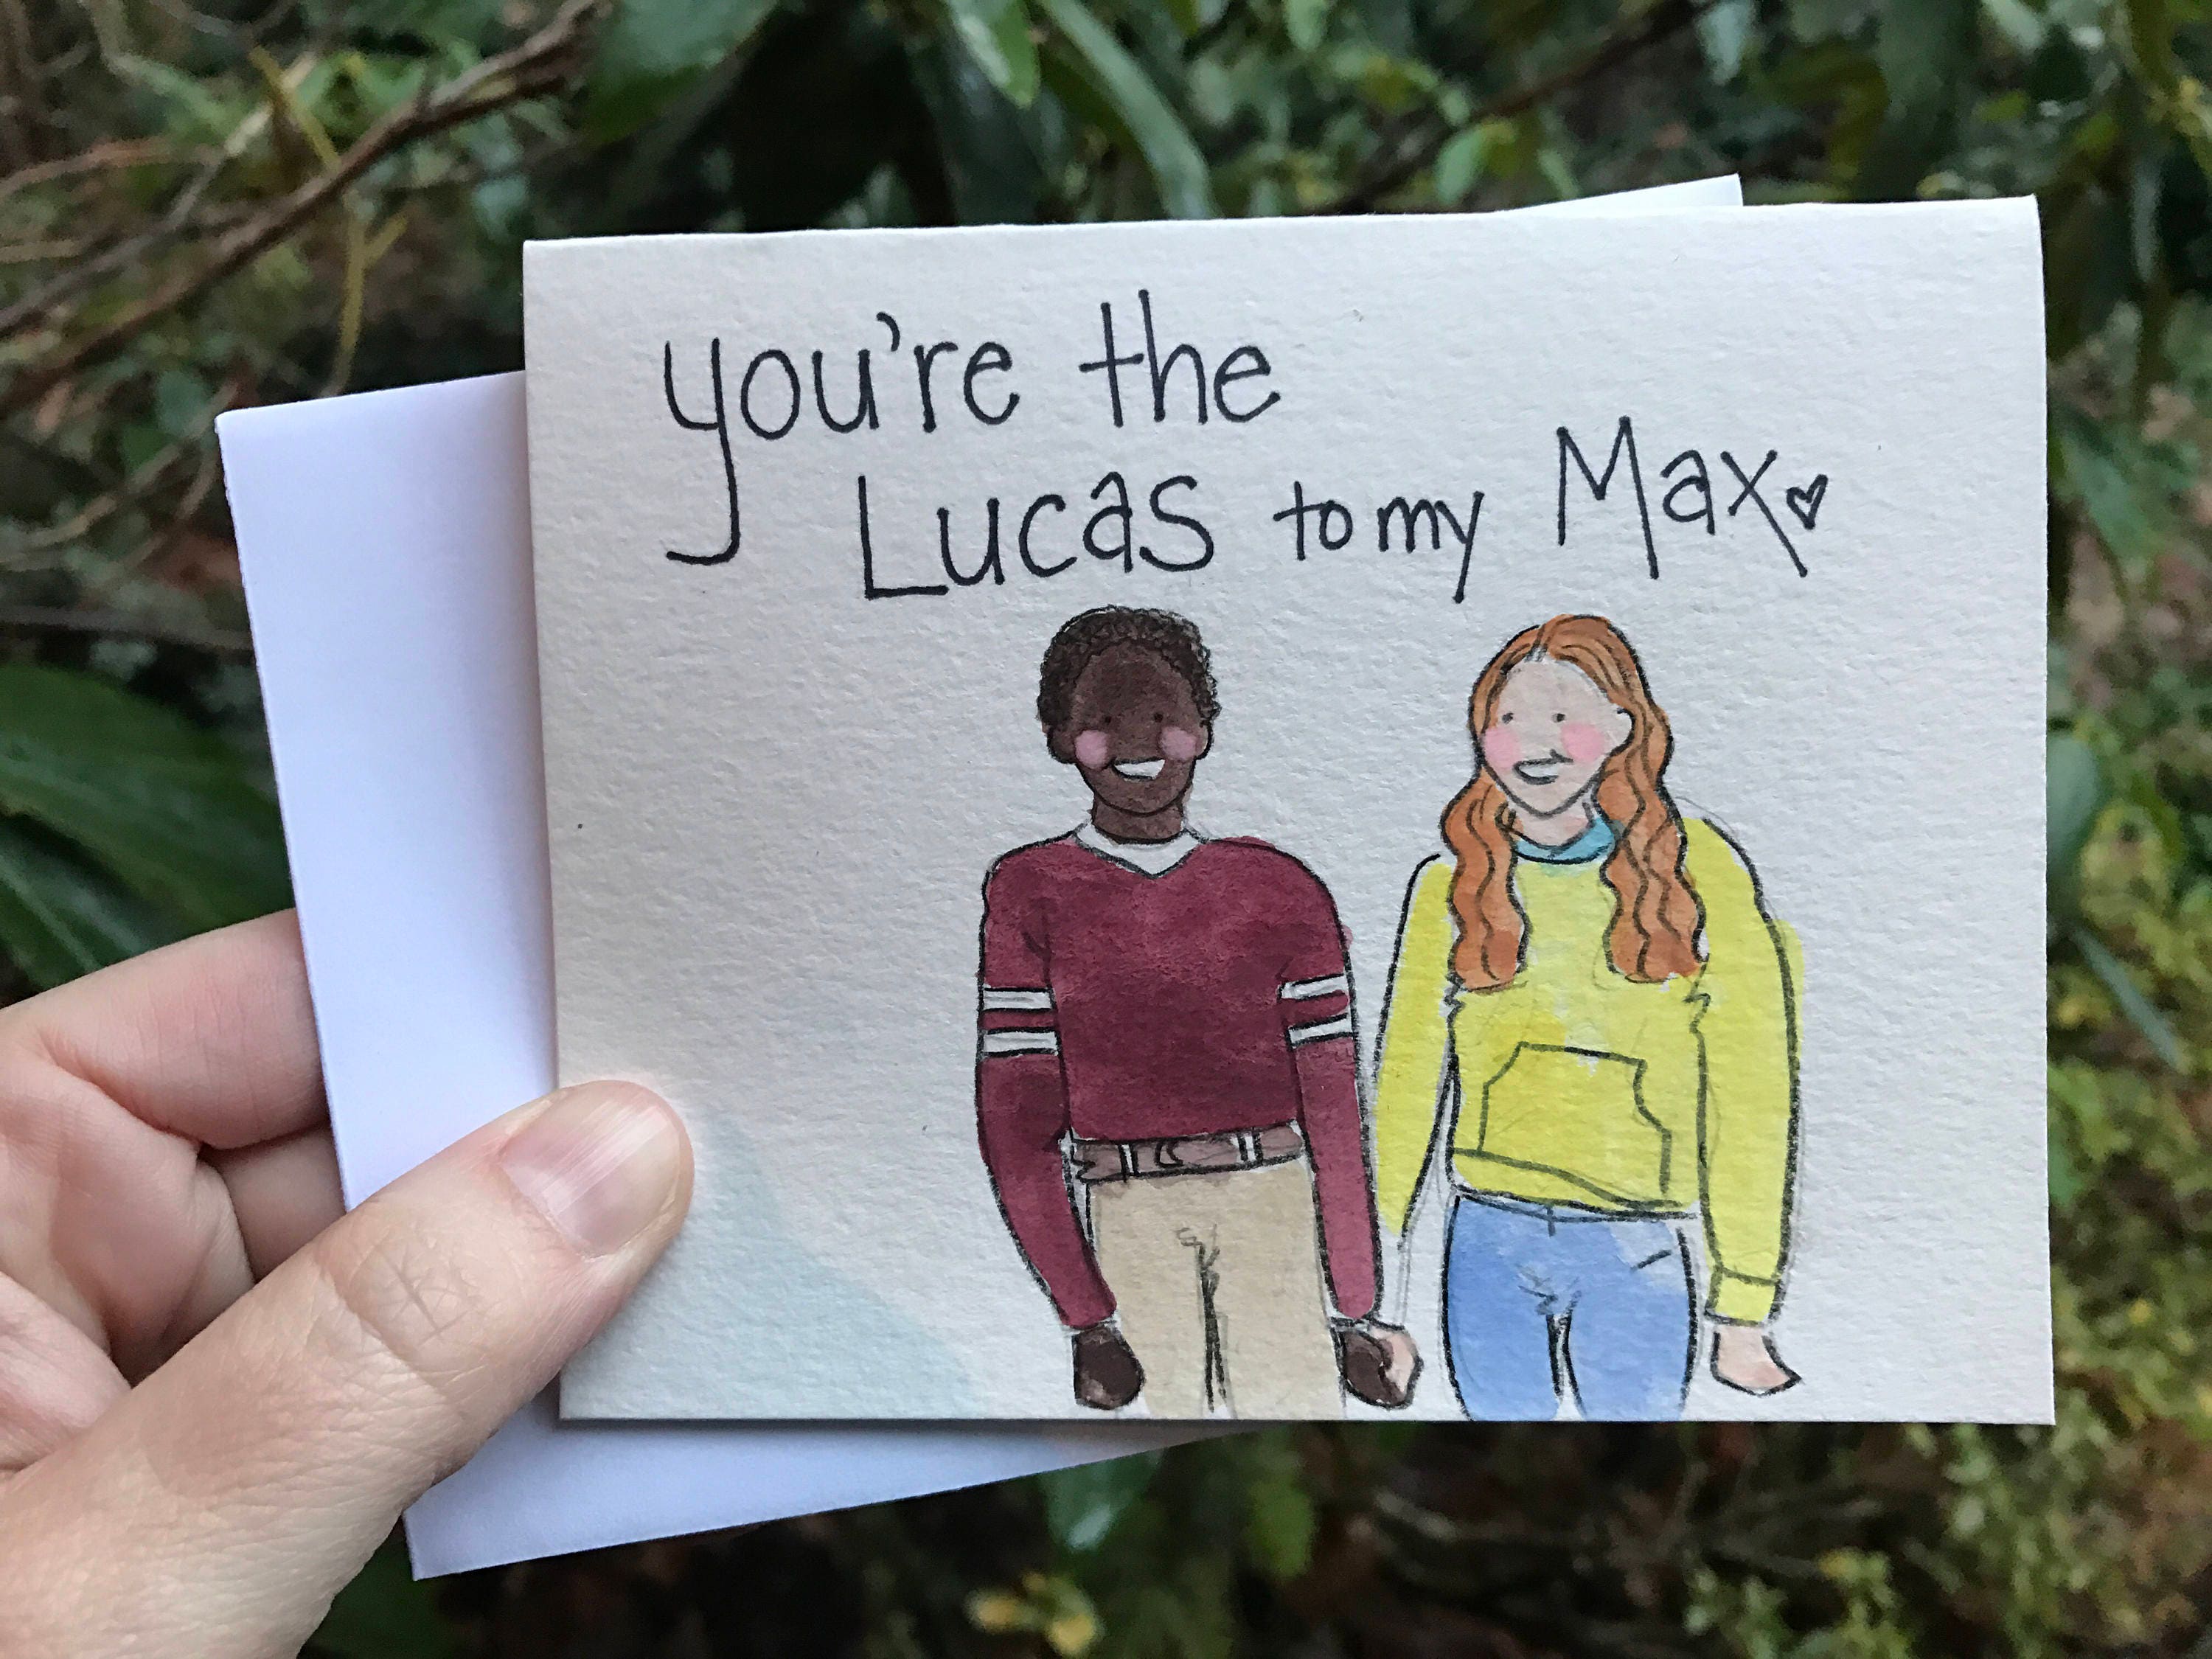 you're the
Lucas to my Max